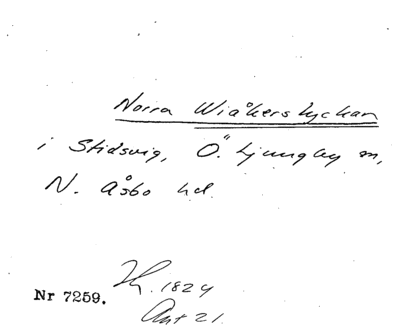 Norra Wiåkerslyckan
i Stidsvig, Ö. Ljungby sn,
N. Åsbo hd.
1824
Nr 7259.
Akt 21.